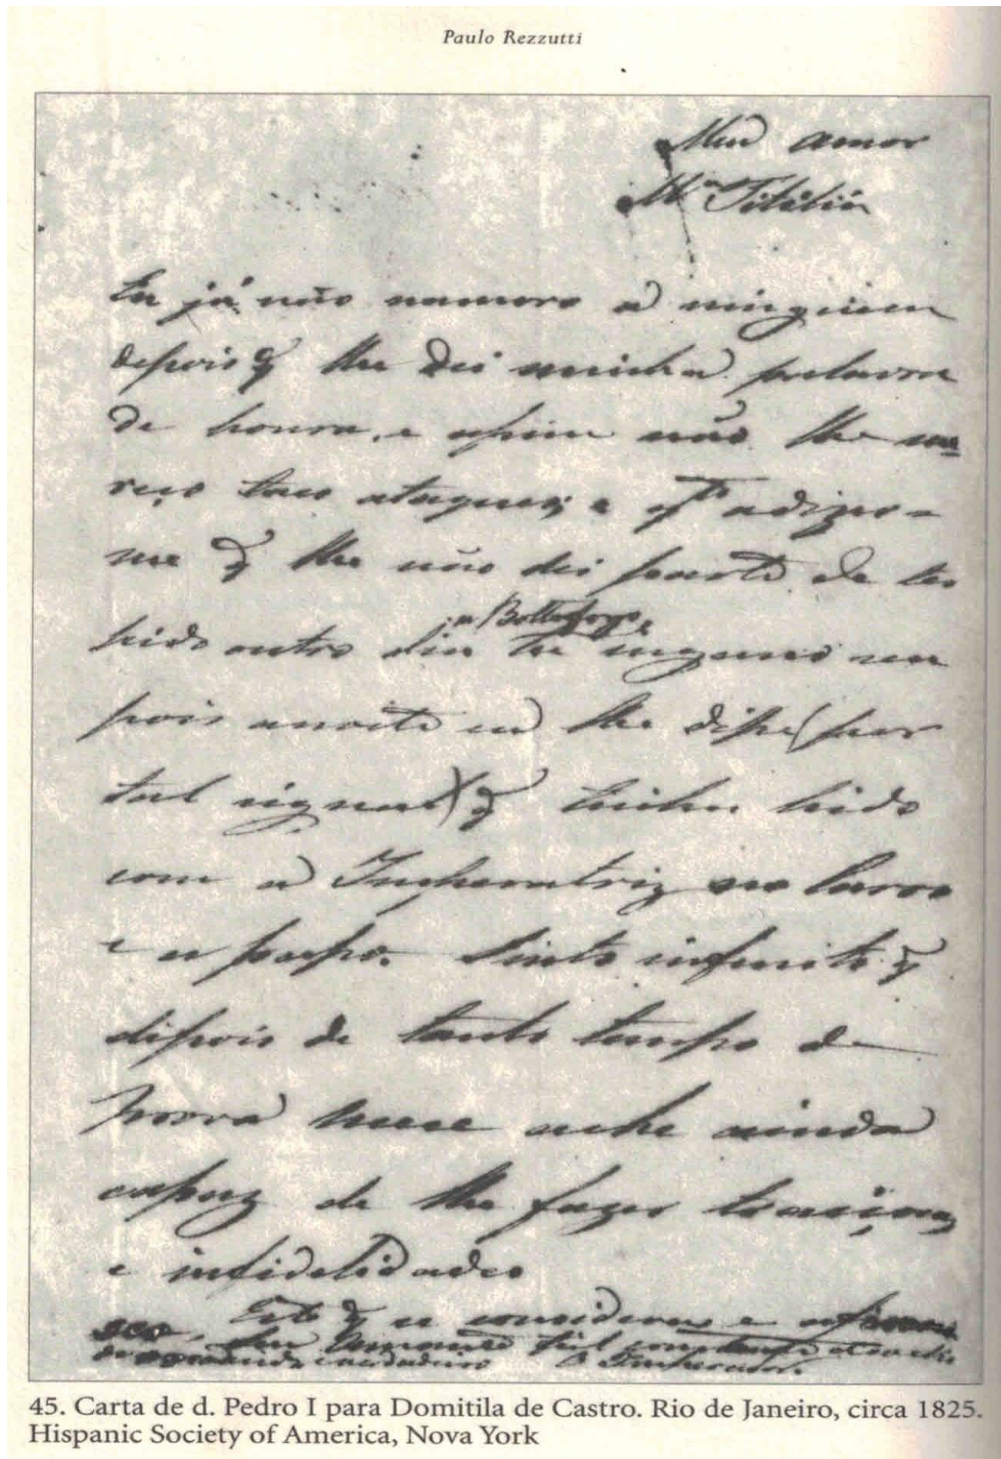 Paulo Rezzutti
Meu amor
M.ª Titilia
Eu já não namoro a ninguem
depois q̃ lhe dei minha palavra
de honra, e assim não lhe me
reço taes ataques; e q.to a dizer-
me q̃ lhe não dei parte de ter
a Bottafogo
hido outro dia he engano seu
pois a noite eu lhe disse (por
tal signal) q̃ tinha hido
com a Imperatriz no carro
e a passo. Sinto infinito q̃
depois de tanto tempo de
prova mece ache ainda
capaz de lhe fazer traiçoes
e infidelidades
Este q̃ se considera e
Seu Amante fiel constante
o Imperador.
45. Carta de d. Pedro I para Domitila de Castro. Rio de Janeiro, circa 1825.
Hispanic Society of America, Nova York